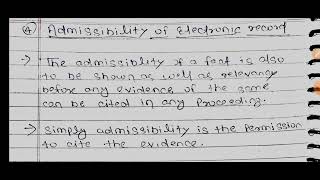 (4) Admissibility of Electronic record
→ The admissiblity of a fact is also
to be shown as well as relevancy
before any evidence of the same
can be cited in any proceeding.
→ Simply admissibility is the permission
to cite the evidence.